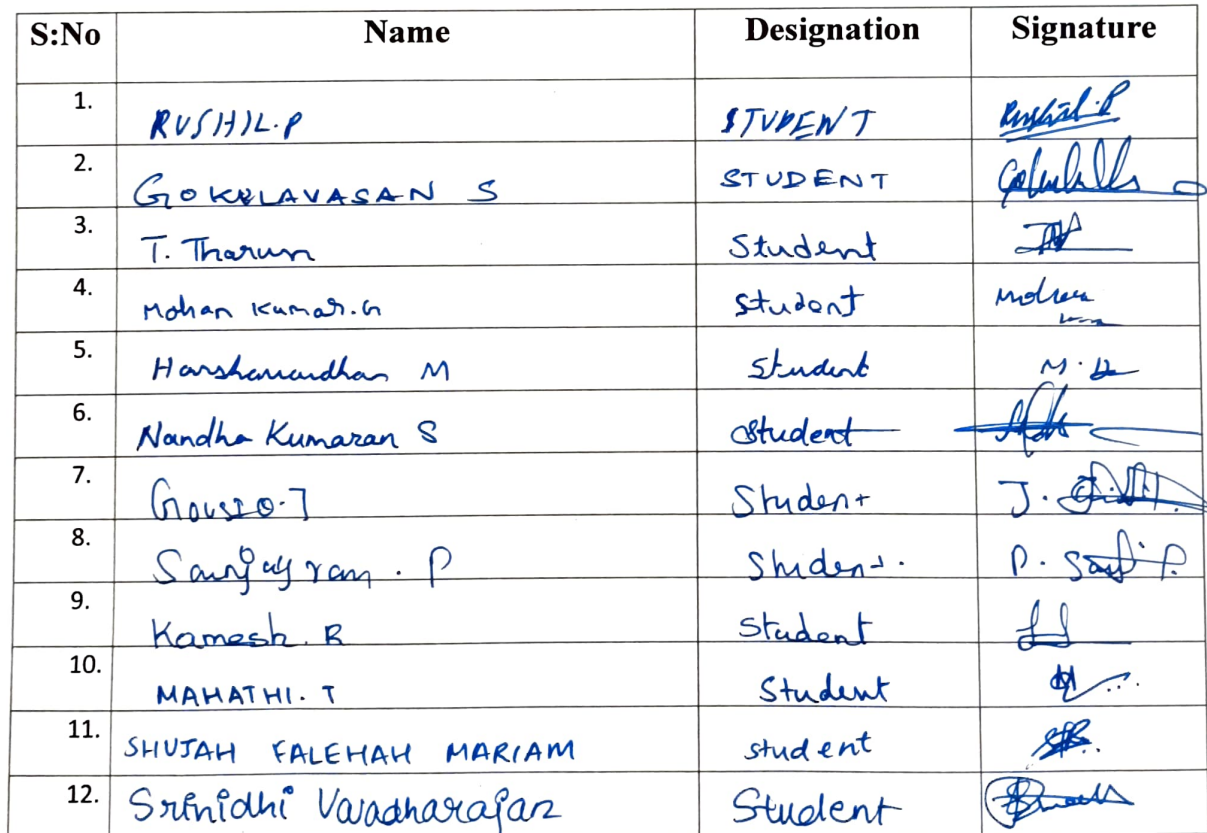 S:No Name Designation Signature
1. RUSHIL.P STUDENT Rushil.P
2. GOKULAVASAN S STUDENT
3. T. Tharun Student
4. Mohan Kumar.G Student Mohan
5. Harshavardhan M Student M.
6. Nandha Kumaran S Student
7. Student J.
8. Sanjayram. P Student. P.
9. Kamesh. R Student
10. MAHATHI. T Student
11. SHUJAH FALEHAH MARIAM student
12. Srinidhi Varadharajan Student